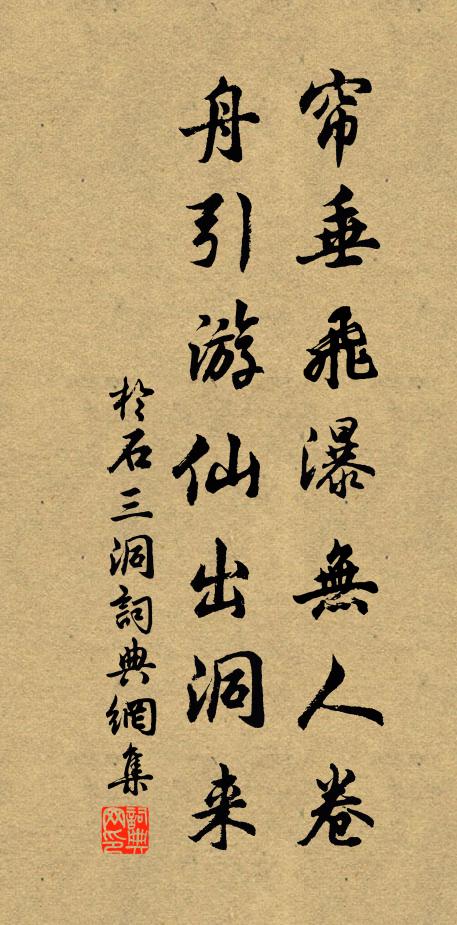 帘垂飛瀑無人卷
舟引游仙出洞来
於石三洞詞典網集
詞典
网印